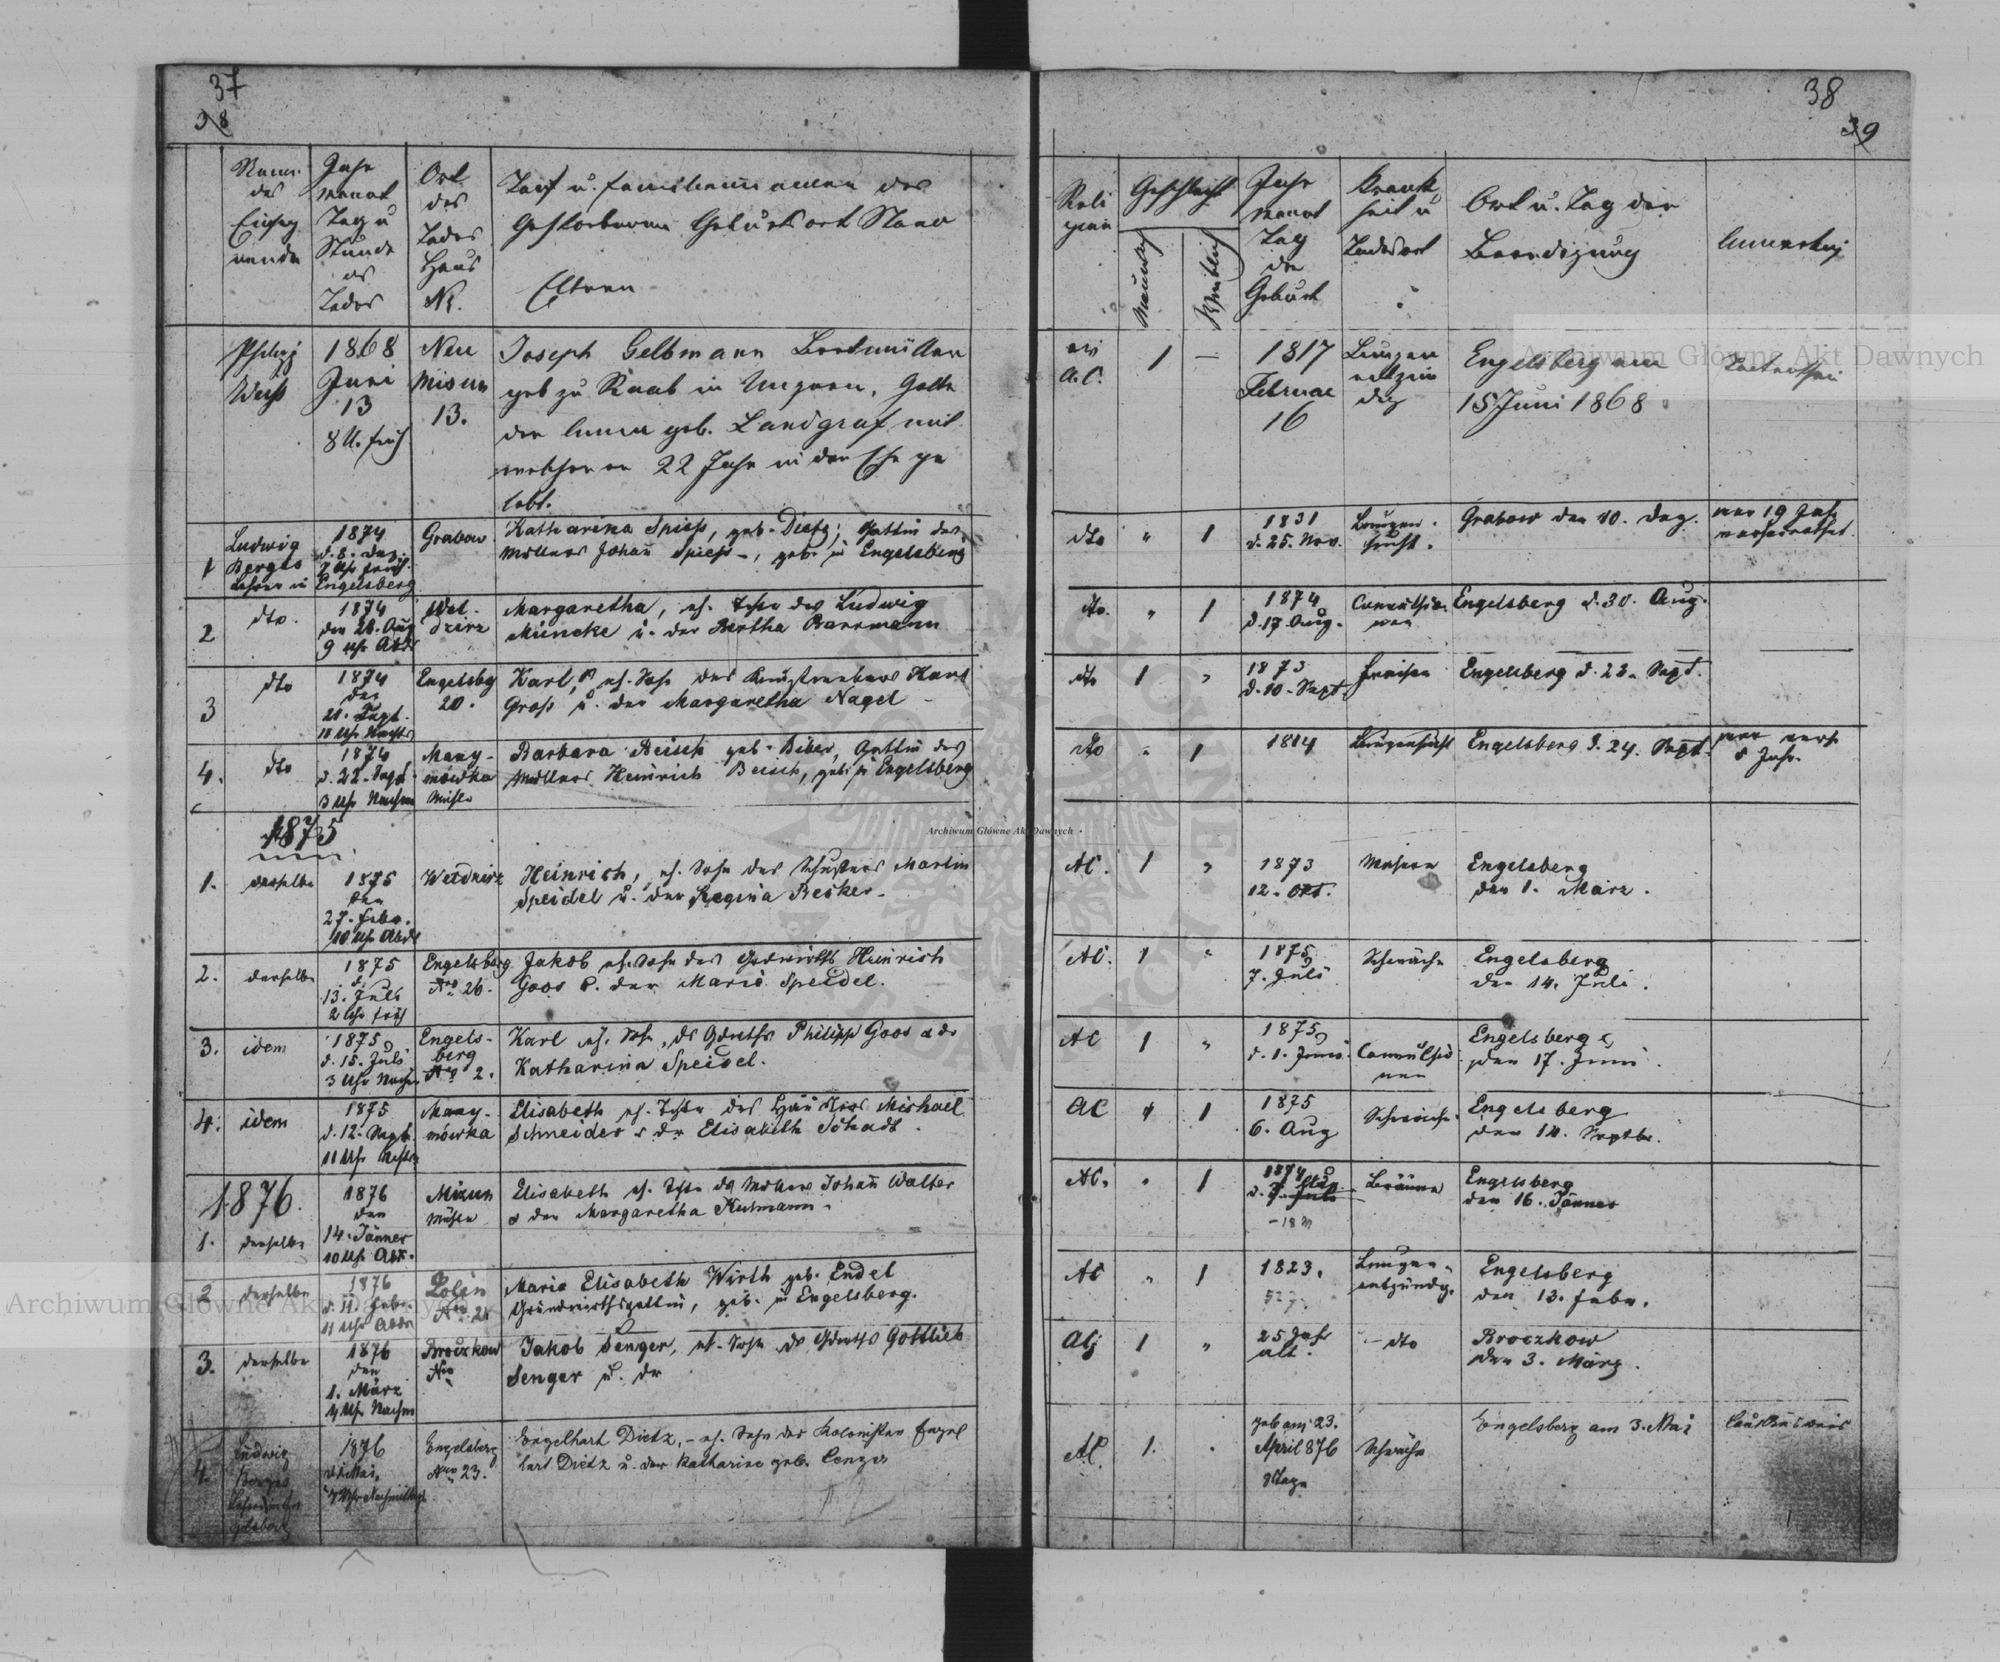 37
38
Name
des
Einseg
nenden
Jahr
Monat
Tag u
Stunde
des
Todes
Ort
des
Todes
Haus
Nr.
Tauf u. Familiennamen des
Gestorbenen Geburtsort Stand
Eltern
Philipp
Weiss
1868
Juni
13
8 U. früh
Neu
Misun
13.
Joseph Gelbmann Brettmüller
geb zu Raab in Ungarn, Gatte
der Anna geb. Landgraf mit
welcher er 22 Jahr in der Ehe ge
lebt.
1
Ludwig
Berges
Lehrer in Engelsberg
1874
d. 8. Dez.
7 Uhr früh.
Grabow
Katharina Spiess, geb. Dietz; Gattin des
Müllers Johañ Spiess –, geb. in Engelsberg
2
dto.
1874
den 28. Aug
9 Uhr Abds
Wel-
dzirz
Margaretha, eh. Tochter des Ludwig
Müncke u. der Bertha Barrmann
3
dto
1874
den
21. Sept.
11 Uhr Nachts
Engelsbg
20.
Karl, eh. Sohn des Hans
Gross u. der Margaretha Nagel
4.
dto
1874
d. 22. Sept.
3 Uhr Nachm
Many-
mówka
Mühle
Barbara Beisch geb. Biber, Gattin des
Müllers Heinrich Beisch, geb. in Engelsberg
1875
1.
derselbe
1875
den
27. Febr.
10 Uhr Abds
Weldzirz
Heinrich, eh. Sohn des Schusters Martin
Speidel u. der Regina Becker
2.
derselbe
1875
d.
13. Juli
2 Uhr früh
Engelsberg
Nro 26.
Jakob eh. Sohn des Grdwirths Heinrich
Goos u. der Maria Speidel.
3.
idem
1875
d. 15. Juli
3 Uhr Nachm
Engels-
berg
Nro 2.
Karl eh. Sohn, ds Grdwirths Philipp Goos & dr
Katharina Speidel.
4.
idem
1875
d. 12. Sept.
11 Uhr
Many-
mówka
Elisabeth eh. Tochter des Michael
Schneider & dr Elisabeth Schadt.
1876.
1.
derselbe
1876
den
14. Jänner
10 Uhr Abds.
Mizun
Mühle
Elisabeth eh. Tochter ds Müllers Johañ Walter
& der Margaretha Kutmann.
2
derselbe
1876
d. 11. Febr.
11 Uhr Abds
Lolin
Nro 21
Maria Elisabeth Wirth geb. Endel
Grundwirthsgattin, geb. in Engelsberg.
3.
derselbe
1876
den
1. März
4 Uhr Nachm
Broczkow
Nro
Jakob Senger, eh. Sohn ds Grdwirths Gottlieb
Senger u. dr
4.
Ludwig
Berges
1876
d. 1. Mai,
Uhr Nachmittags
Engelsberg
Nro 23.
Engelhart Dietz, – eh. Sohn des Kolonisten Engel
hart Dietz u. der Katharina geb.
38
39
Reli
gion
Geschlecht
Männlich
Weiblich
Jahr
Monat
Tag
der
Geburt
Krank
heit u
Todesart
Ort u. Tag der
Beerdigung
Anmerkung
ev
A.C.
1
—
1817
Februar
16
Lungen
entzün
dg
Engelsberg am
15 Juni 1868
dto
"
1
1831
d. 25. Nov.
Lungen-
sucht.
Grabow den 10. Dez.
war 19 Jahr
verheirathet.
dto.
"
1
1874
d. 17. Aug.
Convulsio-
nen
Engelsberg d. 30. Aug.
dto
1
"
1873
d. 10. Sept.
Fraisen
Engelsberg d. 23. Sept.
dto
"
1
1814
Lungensucht
Engelsberg d. 24. Sept.
war verh.
8 Jahr.
AC.
1
"
1873
12. Okt.
Masern
Engelsberg
den 1. März.
AC.
1
"
1875
7. Juli
Schwäche
Engelsberg
den 14. Juli.
AC
1
"
1875
d. 1. Juni.
Convulsio
nen
Engelsberg
den 17. Juni
AC
"
1
1875
6. Aug
Schwäche.
Engelsberg
den 14. Septbr.
AC.
"
1
1874
Bräune
Engelsberg
den 16. Jänner
AC
"
1
1823.
Lungen-
entzündg.
Engelsberg
den 13. Febr.
AC
1
"
25 Jahr
alt.
– dto
Broczkow
den 3. März.
AC
1.
"
geb am 23.
April 876
Tage
Schwäche
Engelsberg am 3. Mai
Archiwum Główne Akt Dawnych
Archiwum Główne Akt Dawnych
Archiwum Główne Akt Dawnych